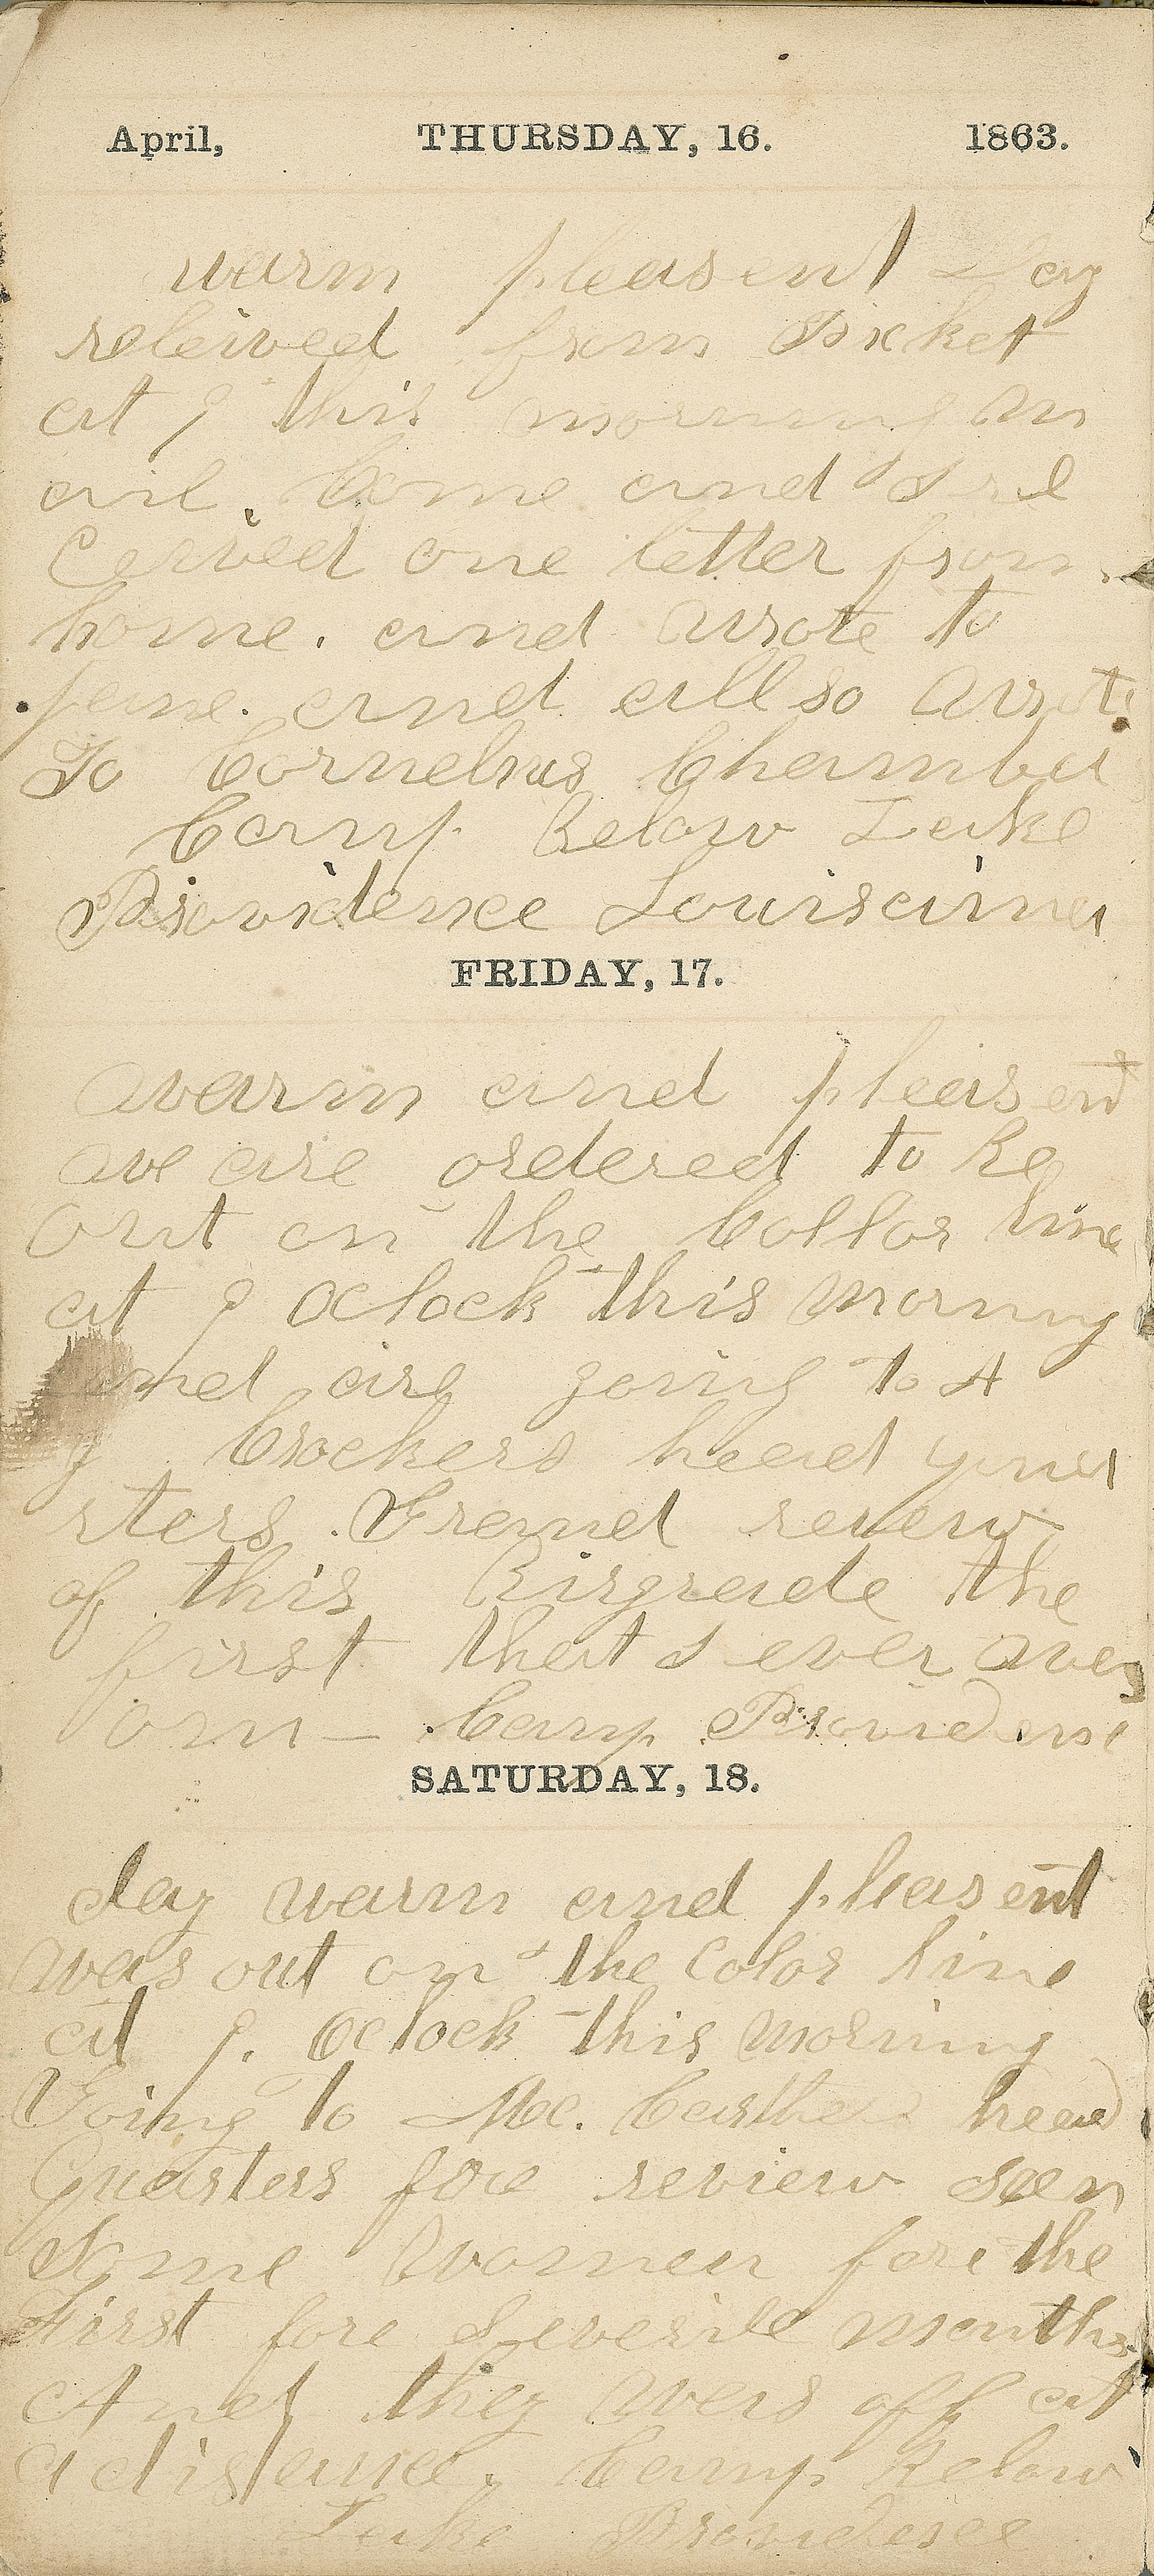 April, THURSDAY, 16. 1863.
warm pleasent Day
releived from Picket
at 9 this morning an
avil. Come and I re
Ceived one letter from
home. and wrote to
jane. and allso wrote
To Cornelius Chamber
Camp Below Lake
Providence Louisciana
FRIDAY, 17.
warm and pleasent
we are ordered to Be
Out on the Collor line
at 9 Oclock this morning
and are going to A
g Crockers head quua
rters. Grand revew
of this Birgrade the
first that I ever was
on — Camp Providense
SATURDAY, 18.
day warm and pleasent
was out on the Color line
at 9. Oclock this morning
Going to Mc. Carthers head
Quarters fore review Seen
Some Women fore the
First fore Severile months
And they wers off at
a distance. Camp Below
Lake Providesce